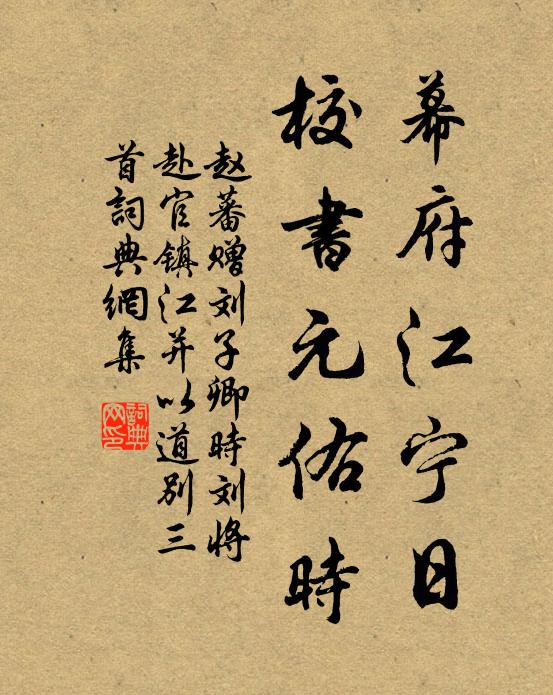 幕府江宁日
校書元佑時
赵蕃赠刘子卿時刘将
赴官镇江并以道别三
首詞典網集
詞典
网印